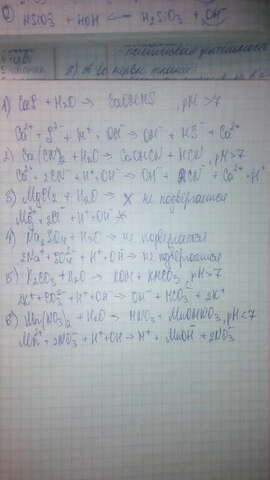 HSiO3⁻ + HOH ⟵ H2SiO3 + OH⁻
1) CaS + H2O → CaOHHS , pH>7
Ca²⁺ + S²⁻ + H⁺ + OH⁻ → OH⁻ + HS⁻ + Ca²⁺
2) Ca(CN)2 + H2O → CaOHCN + HCN, pH>7
Ca²⁺ + 2CN⁻ + H⁺ + OH⁻ → OH⁻ + 2CN⁻ + Ca²⁺ + H⁺
3) MgCl2 + H2O → X не подвергается
Mg²⁺ + 2Cl⁻ + H⁺ + OH⁻
4) Na2SO4 + H2O → не подвергается
2Na⁺ + SO4²⁻ + H⁺ + OH⁻ → не подвергается
5) K2CO3 + H2O → KOH + KHCO3, pH>7
2K⁺ + CO3²⁻ + H⁺ + OH⁻ → OH⁻ + HCO3⁻ + 2K⁺
6) Mn(NO3)2 + H2O → HNO3 + MnOHNO3, pH<7
Mn²⁺ + 2NO3⁻ + H⁺ + OH⁻ → H⁺ + MnOH⁻ + 2NO3⁻